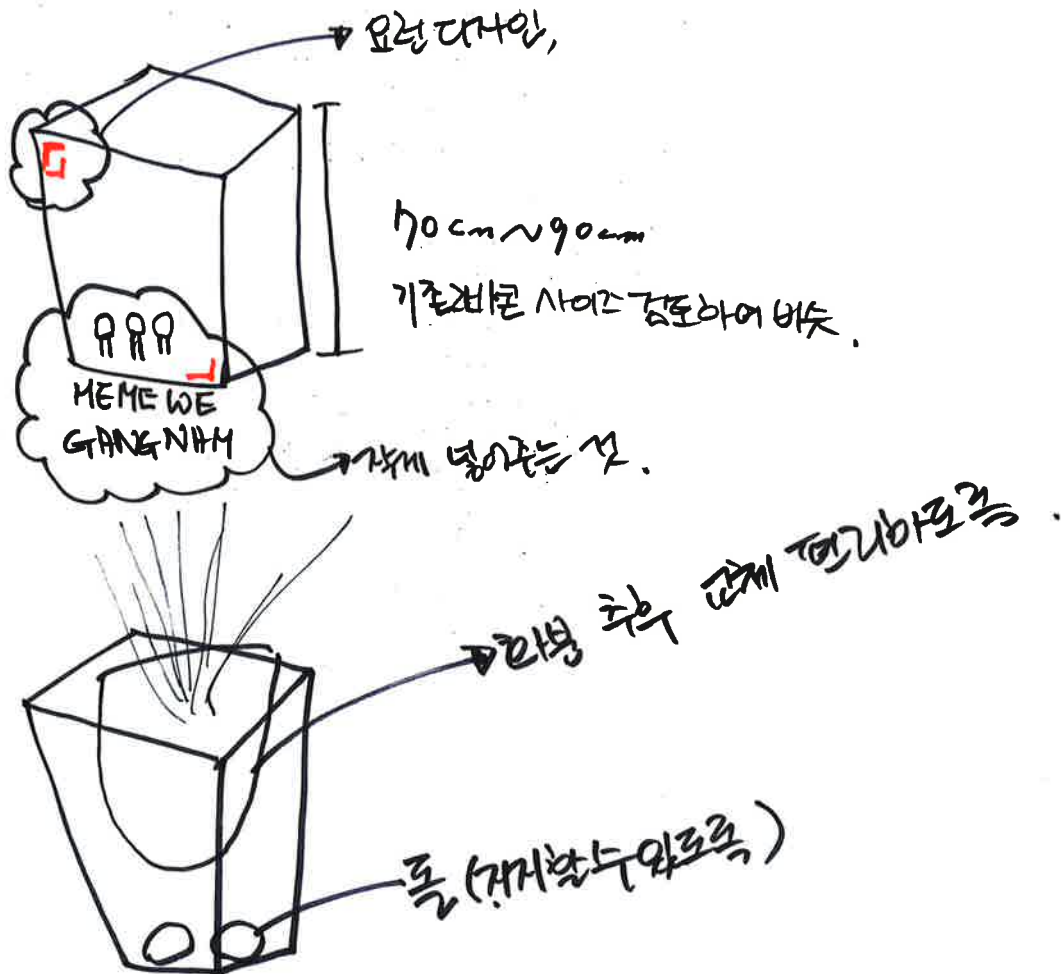 요런 디자인,
70cm~90cm
기존 라바콘 사이즈 검토하여 비슷.
MEME WE
GANGNAM
작게 넣어주는 것.
화분 추후 교체 편리하도록.
돌 (지지할 수 있도록)